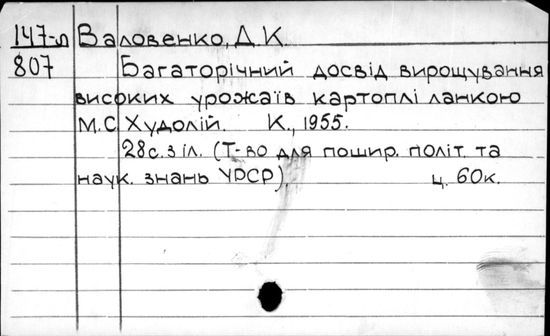 147-д Валовенко, Д.К.
807 Багаторічний досвід вирощування
високих урожаїв картоплі ланкою
М.С. Худолій. К., 1955.
28с. з іл. (Т-во для пошир. політ. та
наук. знань УРСР). ц. 60к.